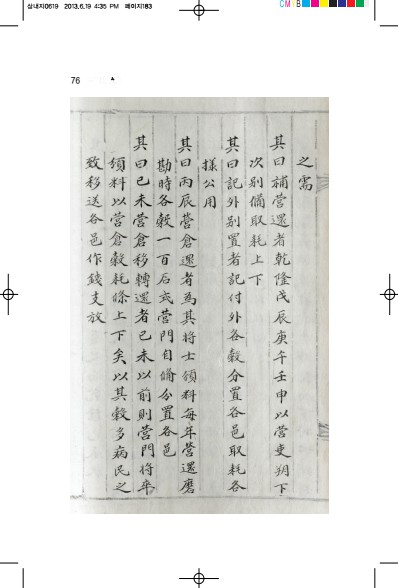 삼내지0619 2013.6.19 4:35 PM 페이지183
CM
76
之需
其曰補營還者乾隆戊辰庚午壬申以營吏朔下
次別備取耗上下
其曰記外別置者記付外各穀分置各邑取耗各
樣公用
其曰丙辰營倉還者為其將士領料每年營還磨
勘時各穀一百石式營門自備分置各邑
其曰已未營倉移轉還者已未以前則營門將卒
領料以營倉穀耗條上下矣以其穀多病民之
致移送各邑作錢支放